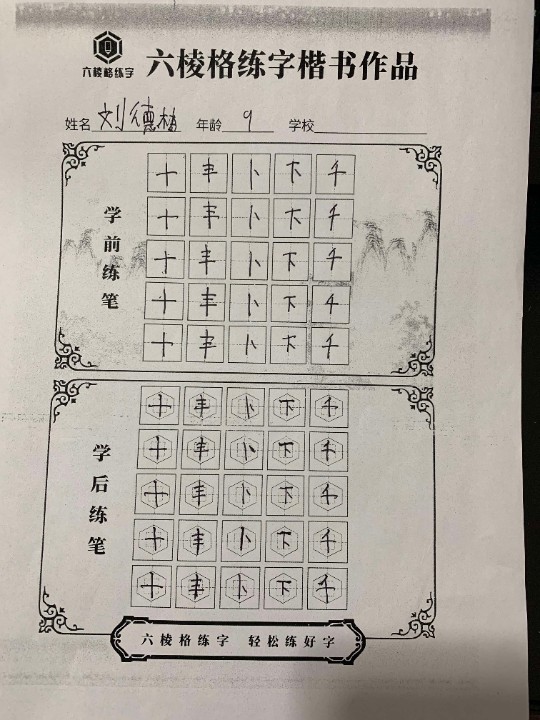 六棱格练字 六棱格练字楷书作品
姓名 刘德 年龄 9 学校
学前练笔
十 丰 卜 下 千
十 丰 卜 下 千
十 丰 卜 下 千
十 丰 卜 下 千
十 丰 卜 下 千
学后练笔
十 丰 卜 下 千
十 丰 卜 下 千
十 丰 卜 下 千
十 丰 卜 下 千
十 丰 卜 下 千
六棱格练字 轻松练好字